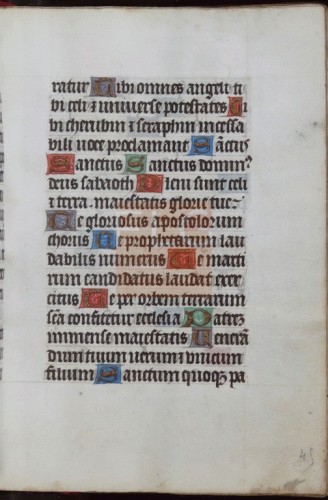 ratur Tibi omnes angeli ti
bi celi ⁊ universe potestates Ti
bi cherubin ⁊ seraphin incessa
bili voce proclamant Sāctus
Sanctus Sanctus dominꝰ
deus sabaoth Pleni sunt celi
⁊ terra maiestatis glorie tue
Te gloriosus apostolorum
chorus Te prophetarum lau
dabilis numerus Te marti
rum candidatus laudat exer
citus Te per orbem terrarum
sc̄a confitetur ecclesia Patrēz
immense maiestatis Venerā
dum tuum verum ⁊ unicum
filium Sanctum quoqꝫ pa
45